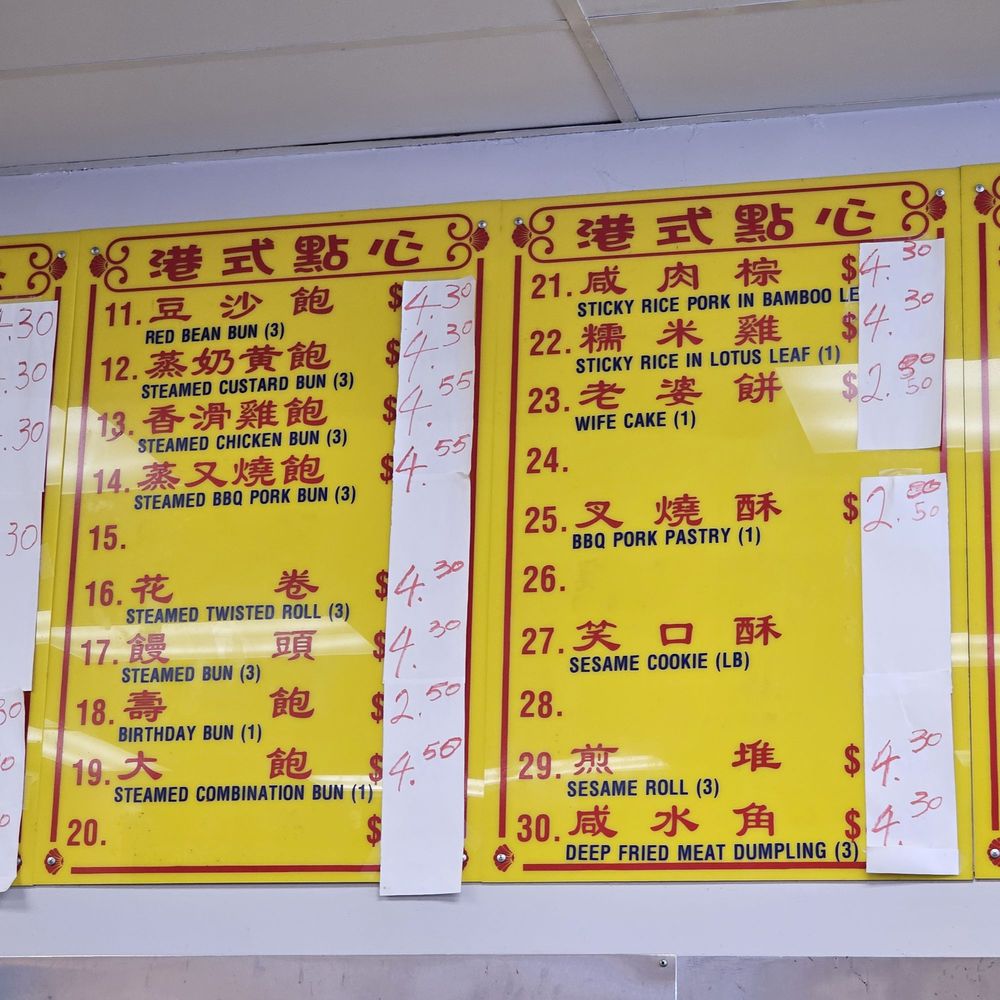 港式點心
11. 豆沙飽 $4.30
RED BEAN BUN (3)
12. 蒸奶黄飽 $4.30
STEAMED CUSTARD BUN (3)
13. 香滑雞飽 $4.55
STEAMED CHICKEN BUN (3)
14. 蒸叉燒飽 $4.55
STEAMED BBQ PORK BUN (3)
15.
16. 花卷 $4.30
STEAMED TWISTED ROLL (3)
17. 饅頭 $4.30
STEAMED BUN (3)
18. 壽飽 $2.50
BIRTHDAY BUN (1)
19. 大飽 $4.50
STEAMED COMBINATION BUN (1)
20. $
港式點心
21. 咸肉棕 $4.30
STICKY RICE PORK IN BAMBOO LE
22. 糯米雞 $4.30
STICKY RICE IN LOTUS LEAF (1)
23. 老婆餅 $2.50
WIFE CAKE (1)
24.
25. 叉燒酥 $2.50
BBQ PORK PASTRY (1)
26.
27. 笑口酥
SESAME COOKIE (LB)
28.
29. 煎堆 $4.30
SESAME ROLL (3)
30. 咸水角 $4.30
DEEP FRIED MEAT DUMPLING (3)